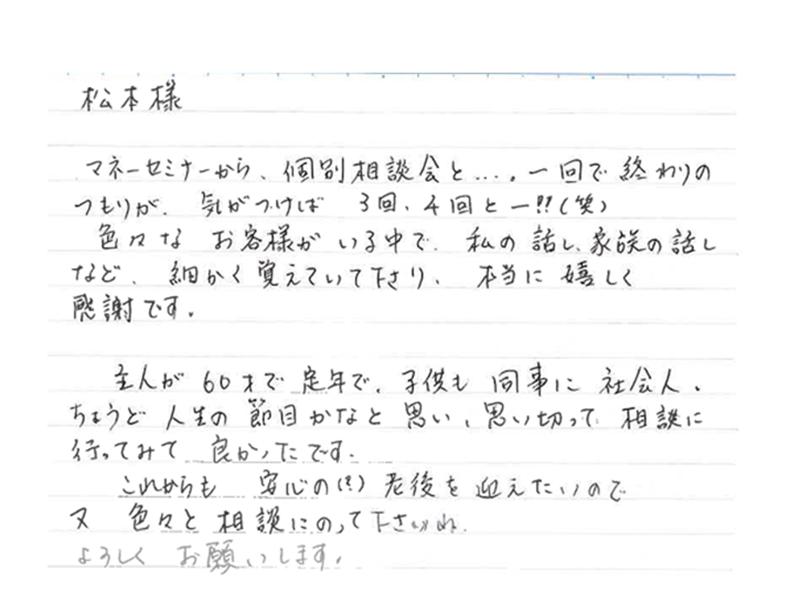 松本様
マネーセミナーから、個別相談会と‥‥。一回で終わりの
つもりが、気がつけば 3回、4回と一!!(笑)
色々な お客様がいる中で、私の話し、家族の話し
など、細かく覚えていて下さり、本当に嬉しく
感謝です。
主人が60才で定年で、子供も同事に社会人、
ちょうど人生の節目かなと思い、思い切って相談に
行ってみて良かったです。
これからも 安心の(!!)老後を迎えたいので
又 色々と相談にのって下さいね。
よろしく お願いします。